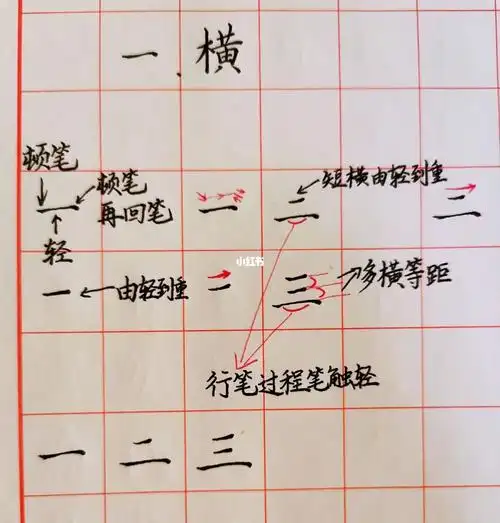 一、横
顿笔
顿笔
再回笔
轻
一
二
短横由轻到重
二
一
由轻到重
一
三
多横等距
小红书
行笔过程笔触轻
一 二 三